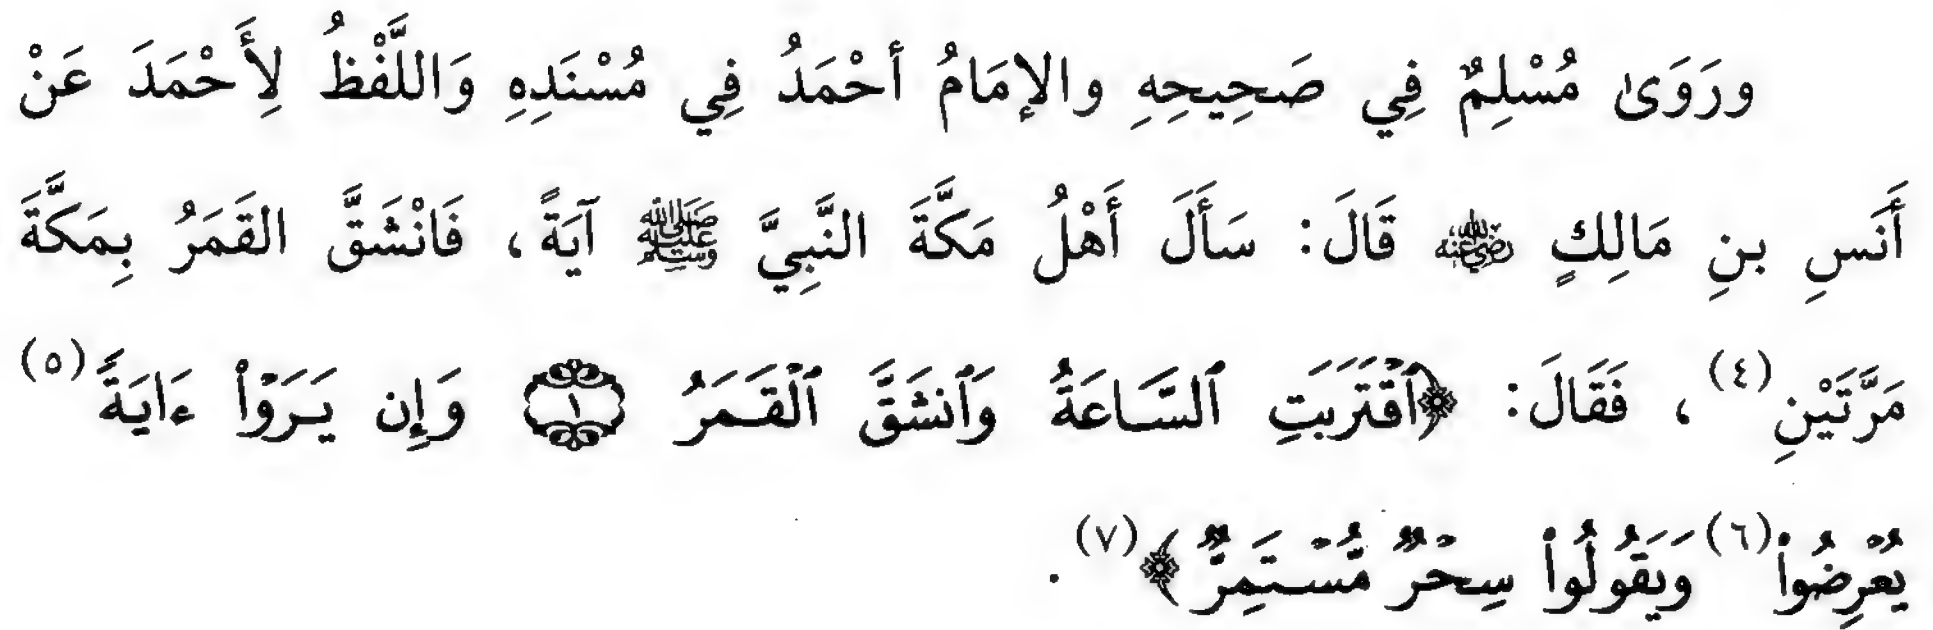 ورَوَىٰ مُسْلِمٌ فِي صَحِيحِهِ والإمَامُ أحْمَدُ فِي مُسْنَدِهِ وَاللَّفْظُ لِأَحْمَدَ عَنْ
أَنَسِ بنِ مَالِكٍ رَضِيَ اللَّهُ عَنْهُ قَالَ: سَأَلَ أَهْلُ مَكَّةَ النَّبِيَّ ﷺ آيَةً، فَانْشَقَّ القَمَرُ بِمَكَّةَ
مَرَّتَيْنِ(٤)، فَقَالَ: ﴿ٱقْتَرَبَتِ ٱلسَّاعَةُ وَٱنشَقَّ ٱلْقَمَرُ ١ وَإِن يَرَوْاْ ءَايَةً(٥)
يُعْرِضُواْ(٦) وَيَقُولُواْ سِحْرٌ مُّسْتَمِرٌّ﴾(٧).